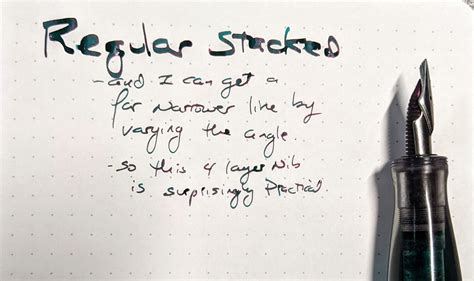 Regular Stacked
- and I can get a
far narrower line by
varying the angle.
- so this 4 layer Nib
is surprisingly practical.